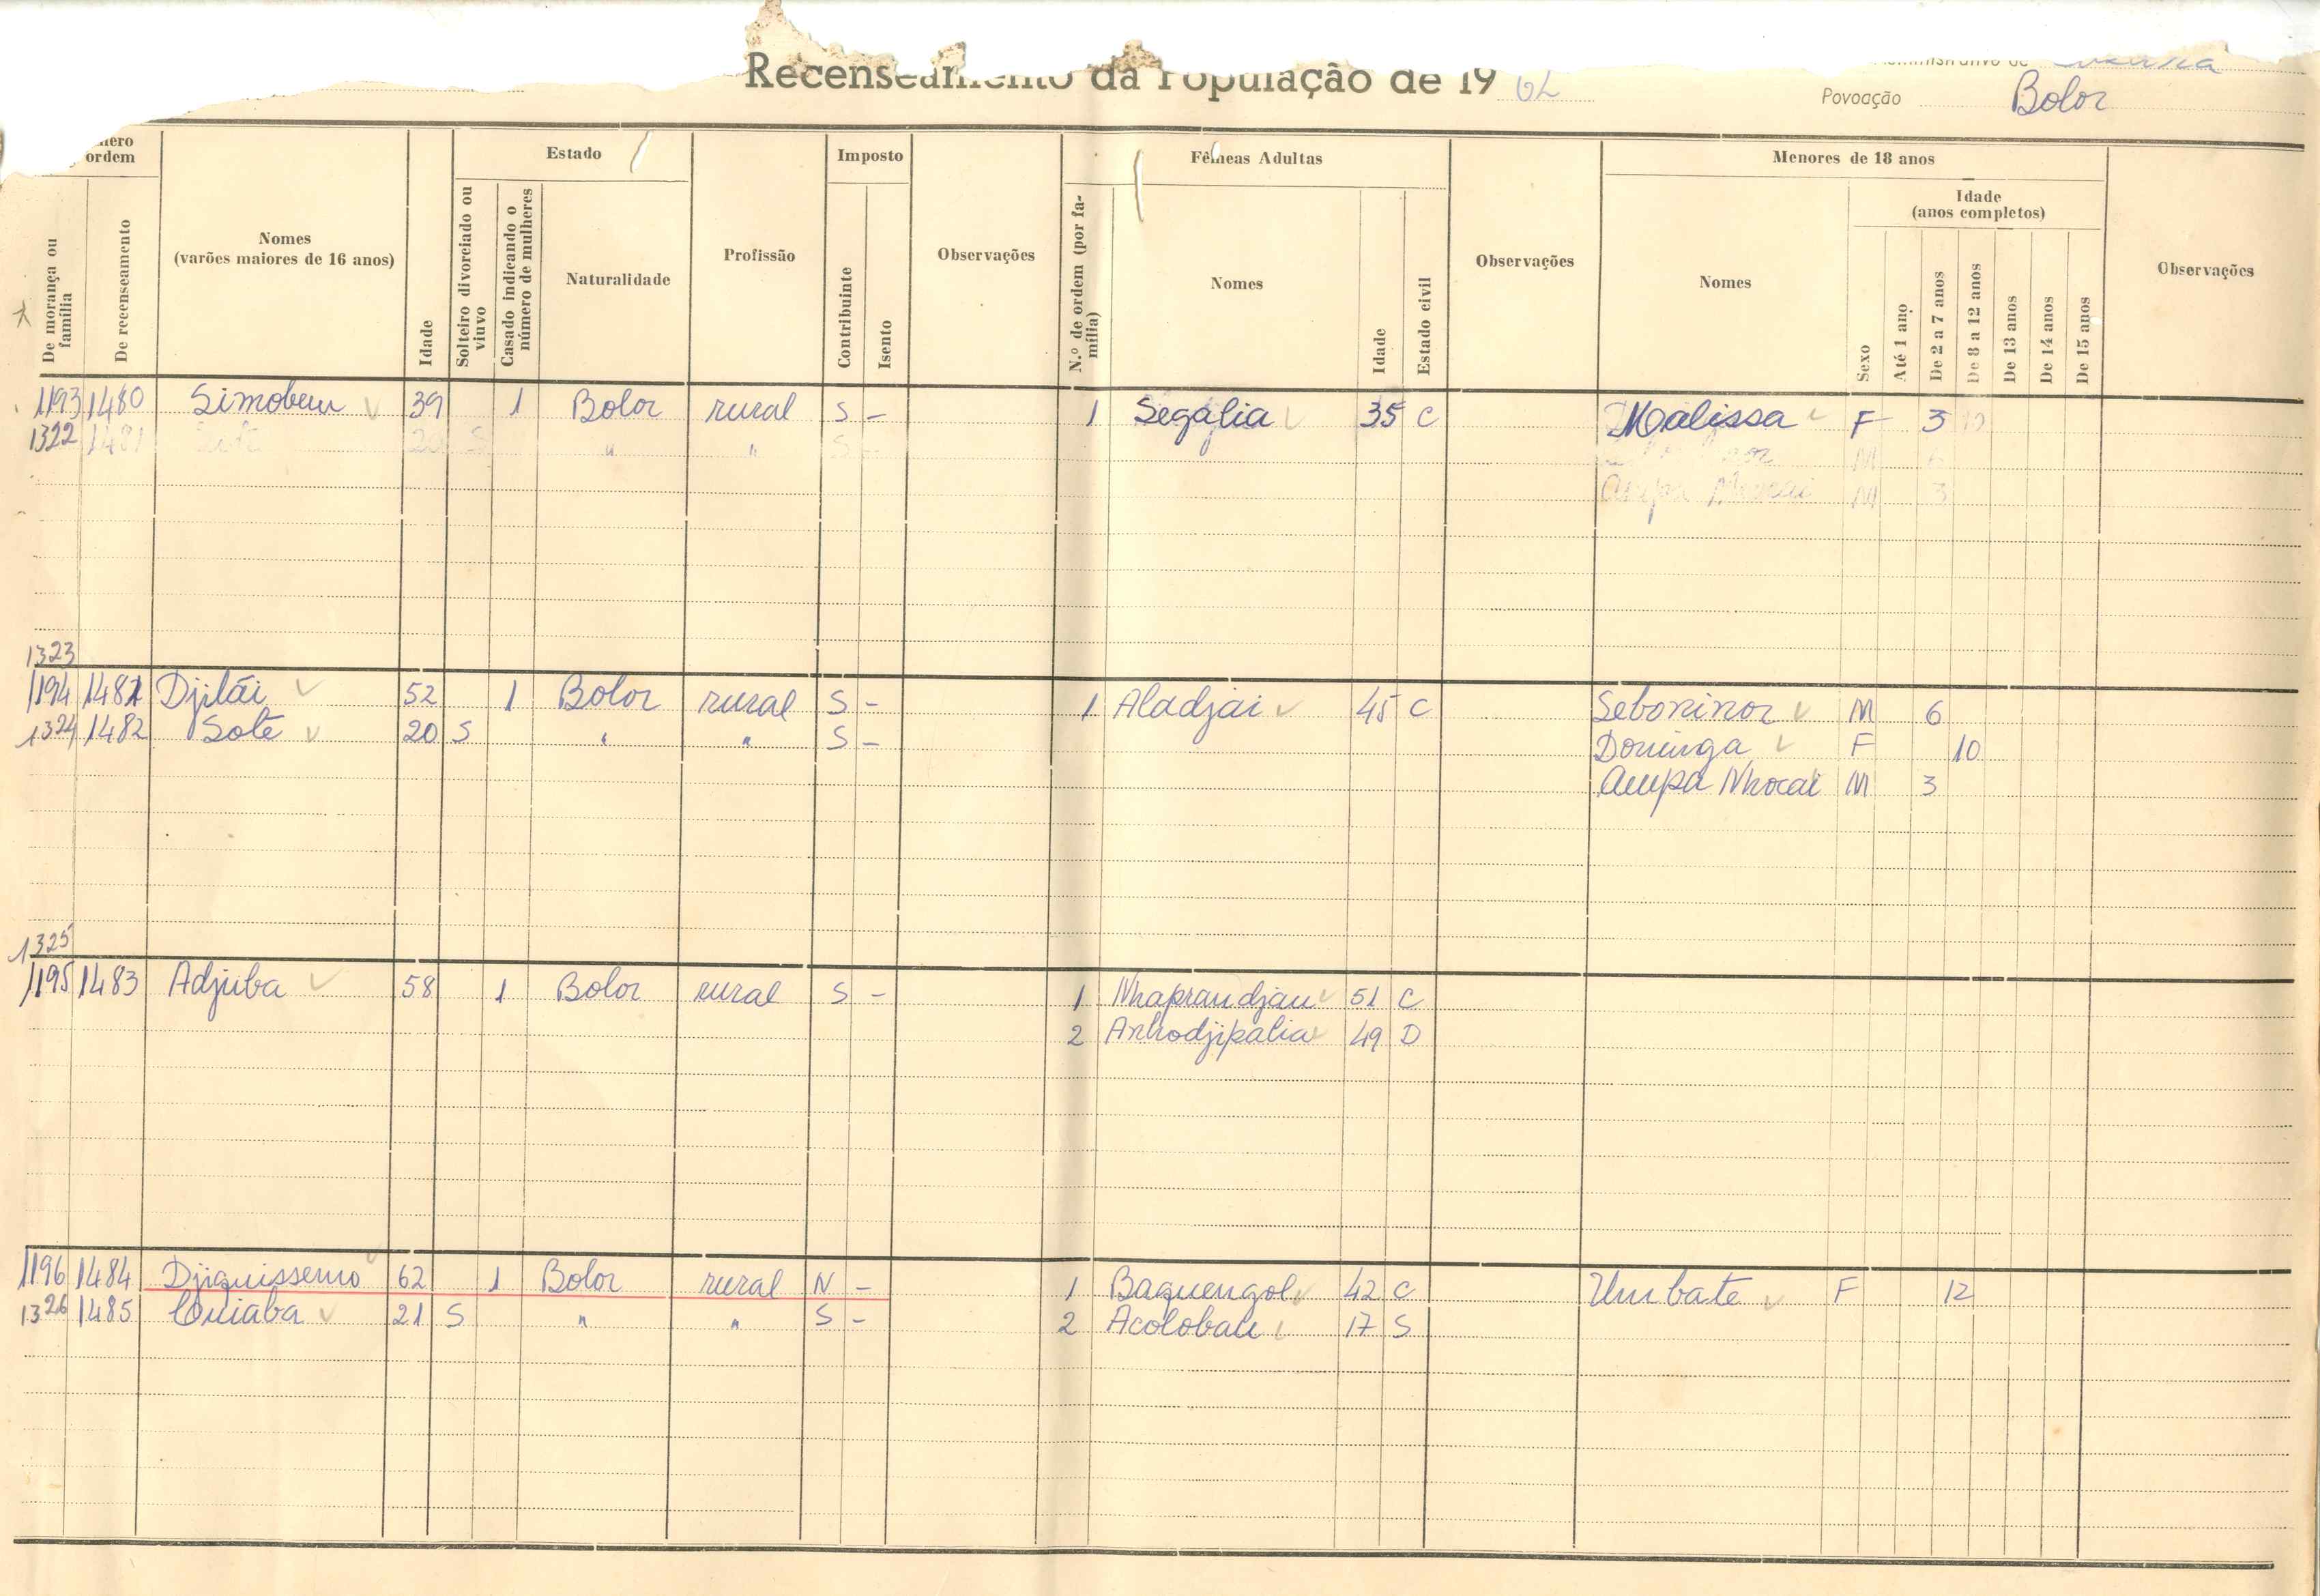 Recenseamento da População de 19 62
Povoação Bolor
ordem
De morança ou família
De recenseamento
Nomes
(varões maiores de 16 anos)
Idade
Estado
Solteiro divorciado ou viuvo
Casado indicando o número de mulheres
Naturalidade
Profissão
Imposto
Contribuinte
Isento
Observações
N.º de ordem (por família)
Fêmeas Adultas
Nomes
Idade
Estado civil
Observações
Menores de 18 anos
Nomes
Sexo
Idade
(anos completos)
Até 1 ano
De 2 a 7 anos
De 8 a 12 anos
De 13 anos
De 14 anos
De 15 anos
Observações
1193 1480 Simobem 39 1 Bolor rural S - 1 Segalia 35 C Malissa F 3
1322 1481 20 S " " S - M
Ampa Nhocai M 3
1323
1194 1481 Djilái 52 1 Bolor rural S - 1 Aladjai 45 C Seboninor M 6
1324 1482 Sote 20 S " " S - Dominga F 10
Ampa Nhocai M 3
1325
1195 1483 Adjuba 58 1 Bolor rural S - 1 Nhaprandjau 51 C
2 Anhodjipalia 49 D
1196 1484 Djiquissemo 62 1 Bolor rural N - 1 Baquengol 42 C Umbate F 12
1326 1485 21 S " " S - 2 17 S